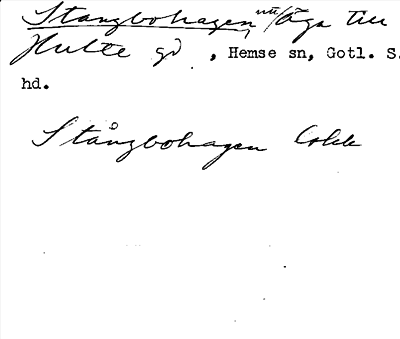 Stångbohagen, nu/äga till
Hulte gd, Hemse sn, Gotl. S.
hd.
Stångbohagen